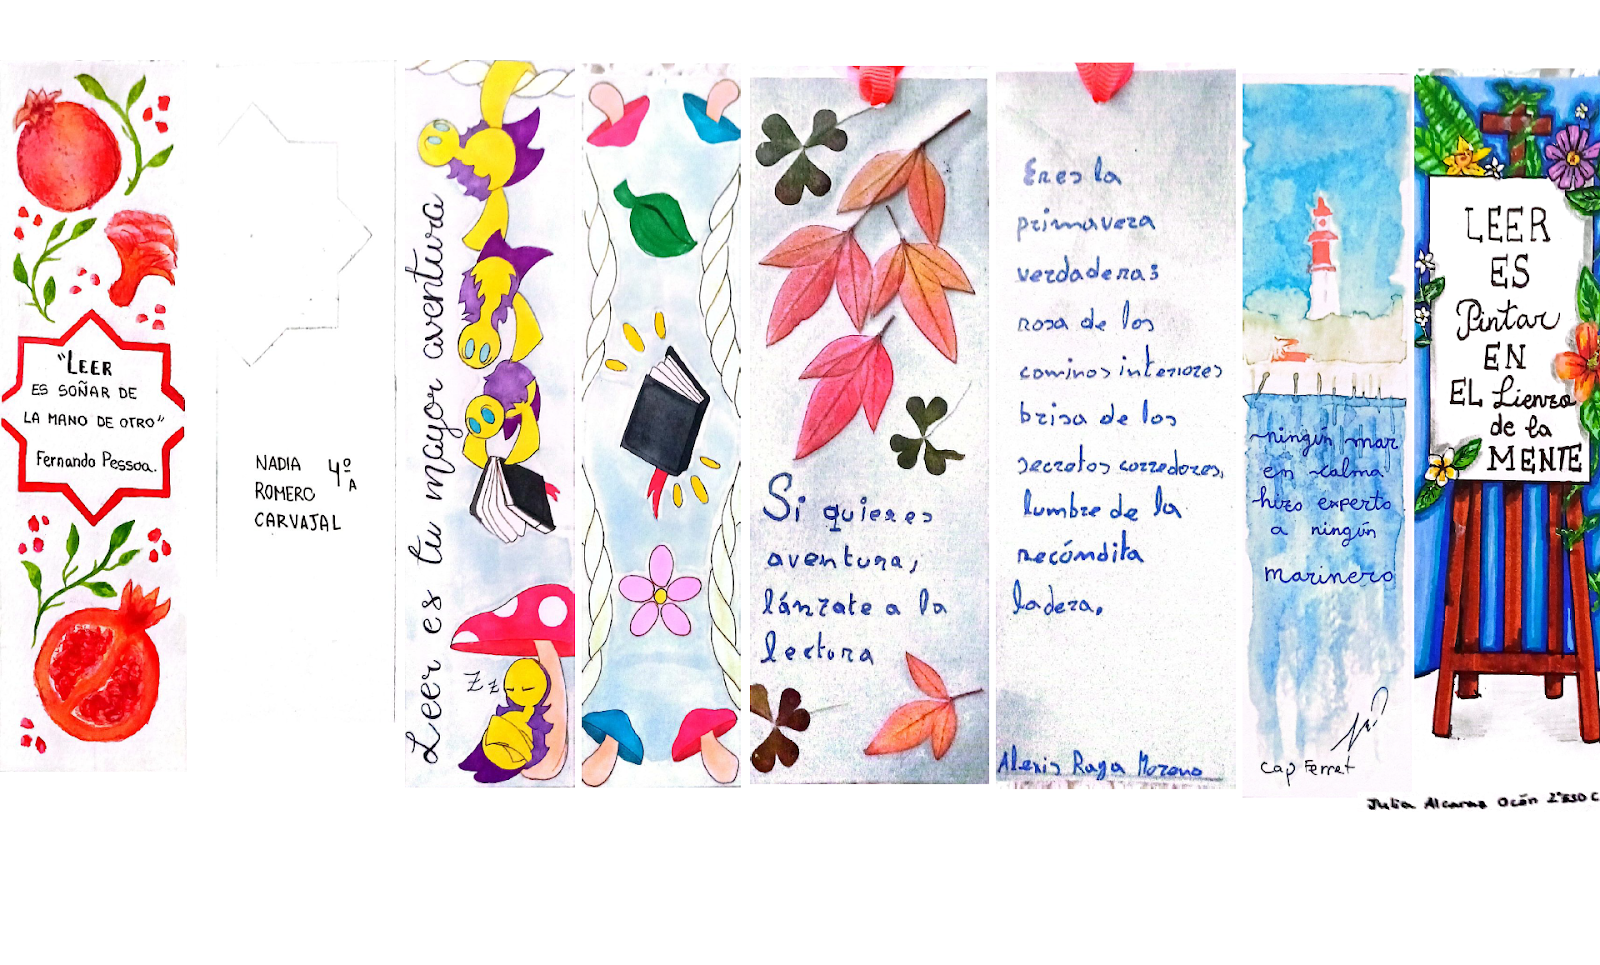 "LEER
ES SOÑAR DE
LA MANO DE OTRO"
Fernando Pessoa.
NADIA 4º
ROMERO A
CARVAJAL
Leer es tu mayor aventura
Zz
Si quieres
aventura,
lánzate a la
lectura
Eres la
primavera
verdadera;
rosa de los
caminos interiores
brisa de los
secretos corredores,
lumbre de la
recóndita
ladera.
Alexis Raga Moreno
ningún mar
en calma
hizo experto
a ningún
marinero
Cap Ferret
LEER
ES
Pintar
EN
EL Lienzo
de la
MENTE
Julia Alcaraz Ocón 2ºESO C